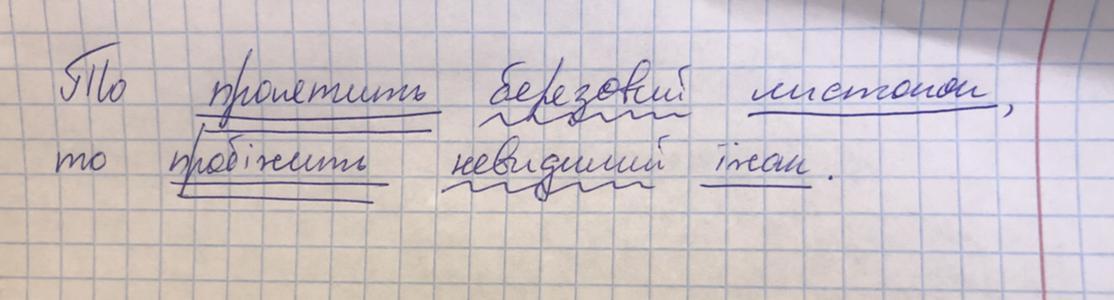 То пролетить березовий листопад,
то пробіжить невидимий їжак.